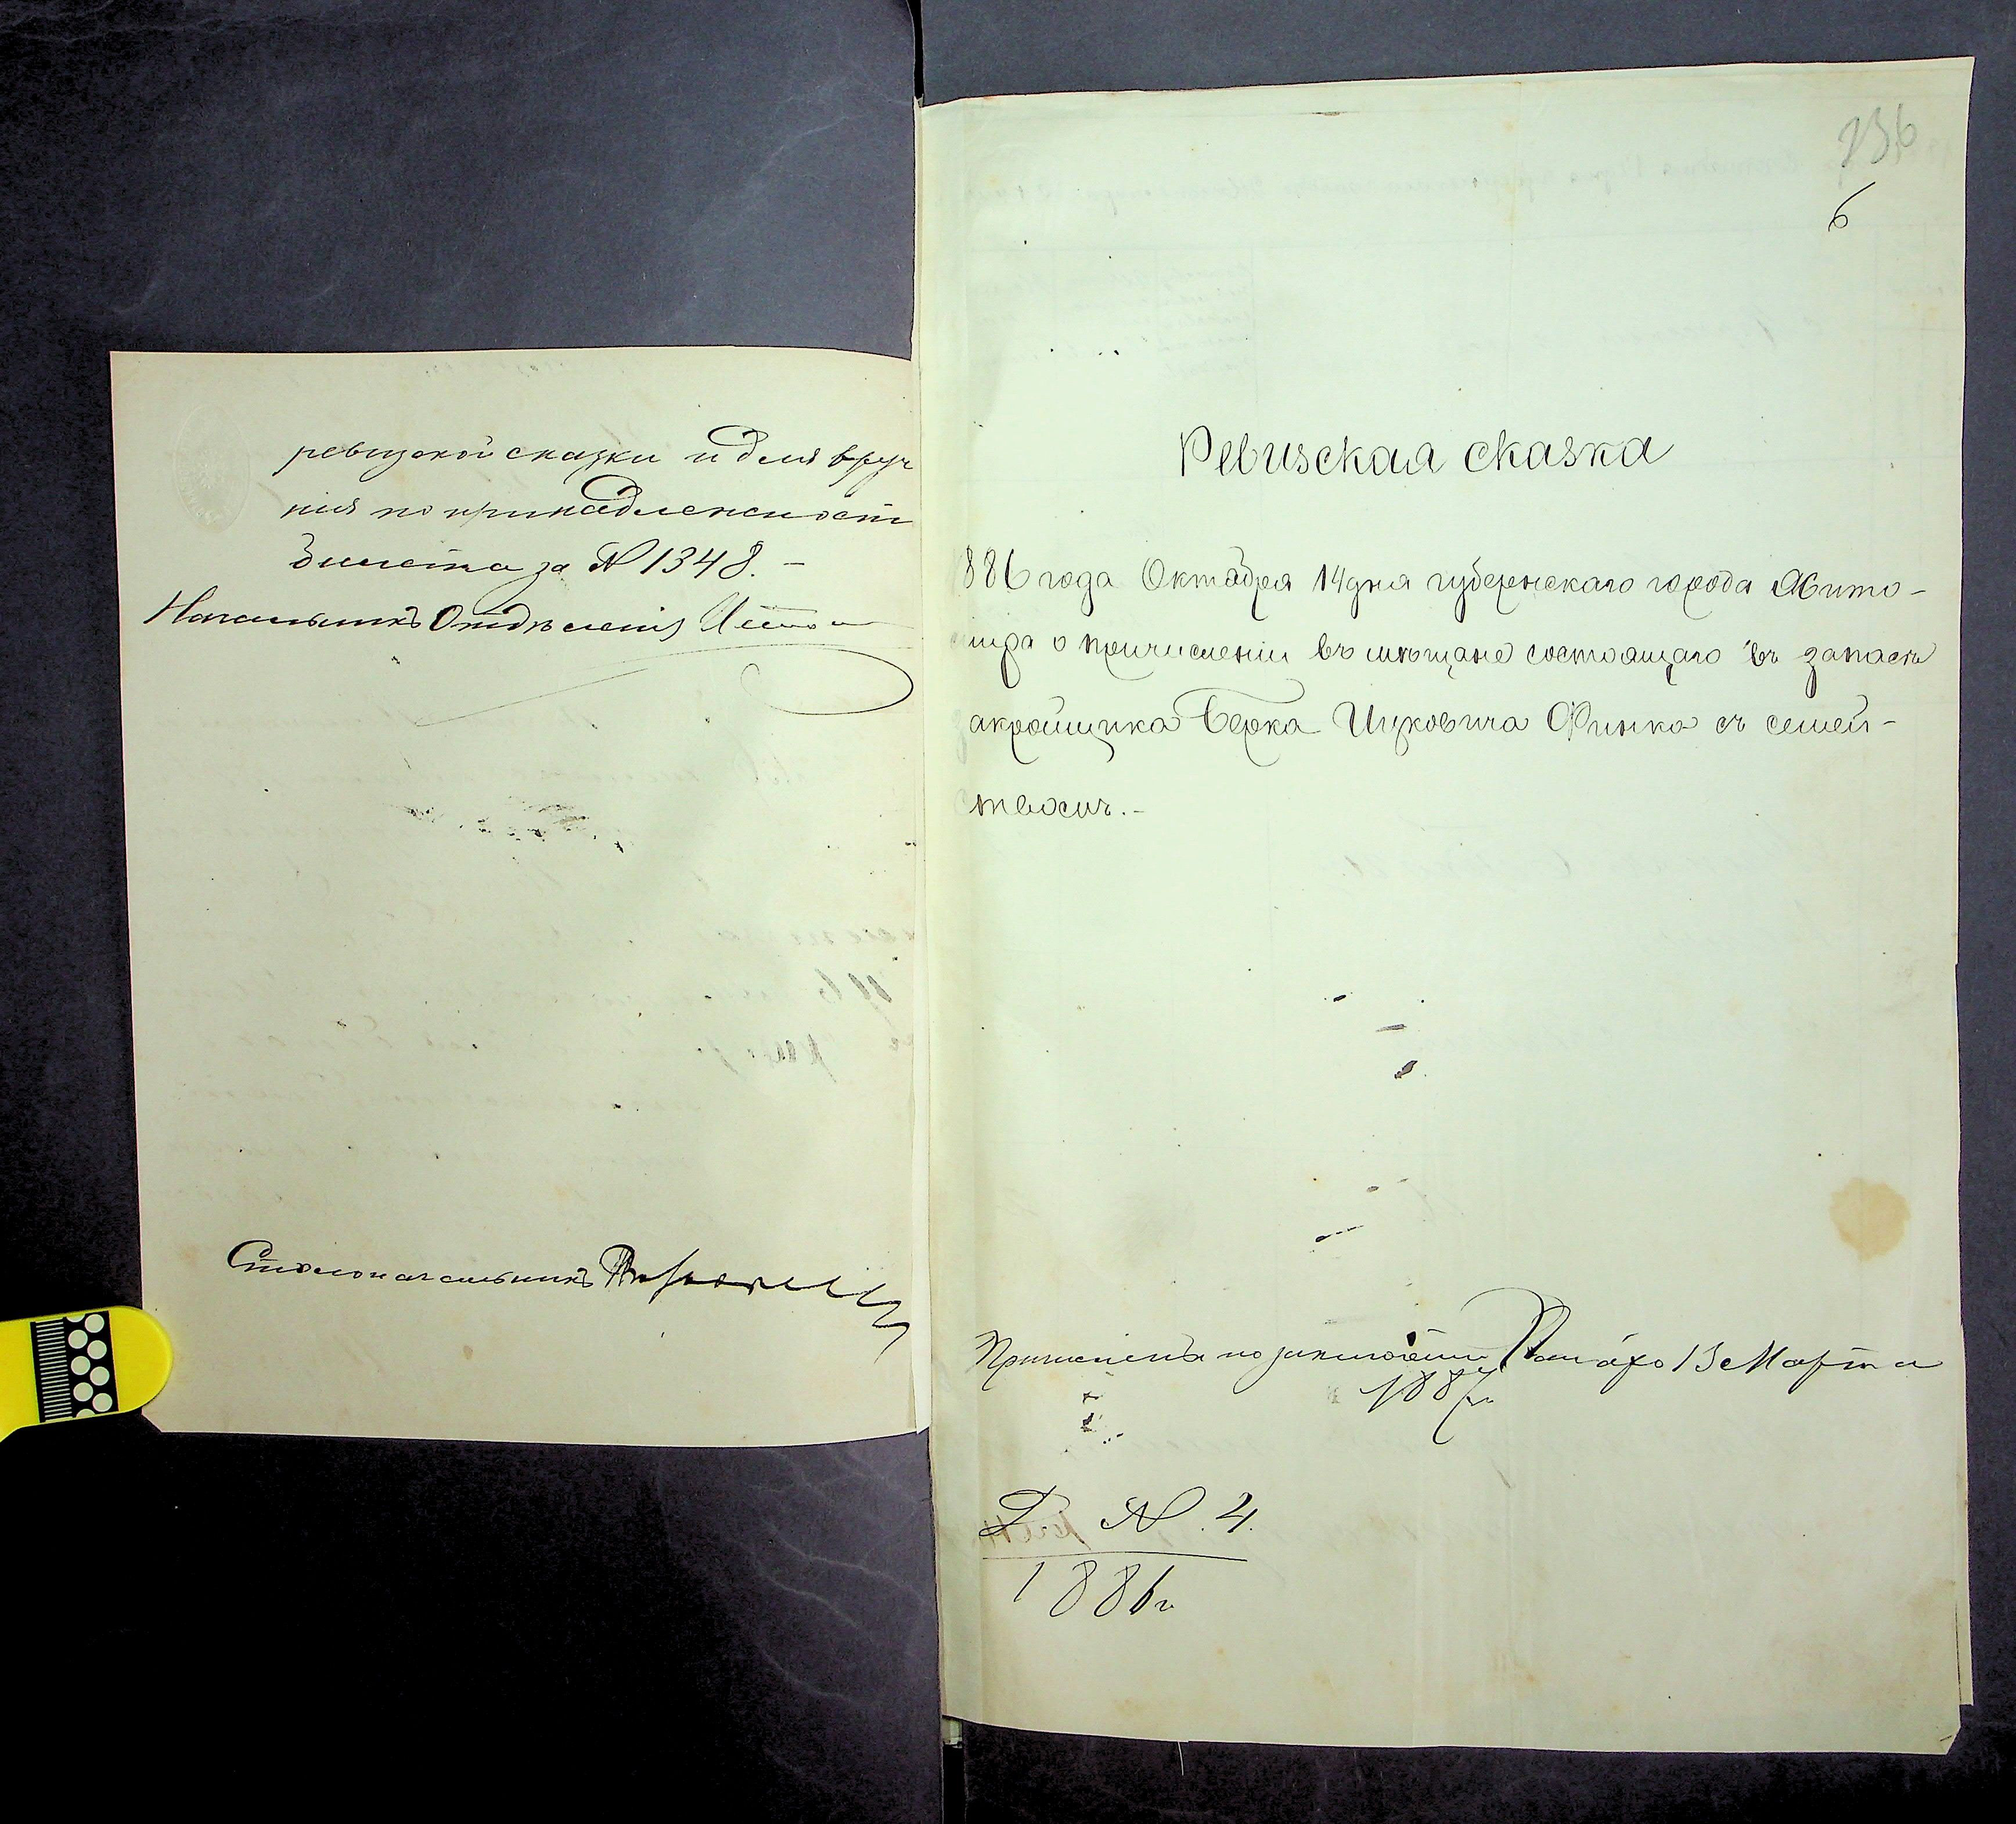 ревизской сказки и для вруч
нія по принадлежност
билета за № 1348. –
Начальникъ Отдѣленія
Столоначальникъ
236
6
Ревизская сказка
886 года Октября 14 дня губернскаго города Жито-
мира о причисленіи въ мѣщане состоящаго въ запасѣ
акройщика Берка Ицковича Финка съ семей-
твомъ. –
Причисленъ по заключенію 13 Марта
1887 г.
Д. № 4.
1886 г.